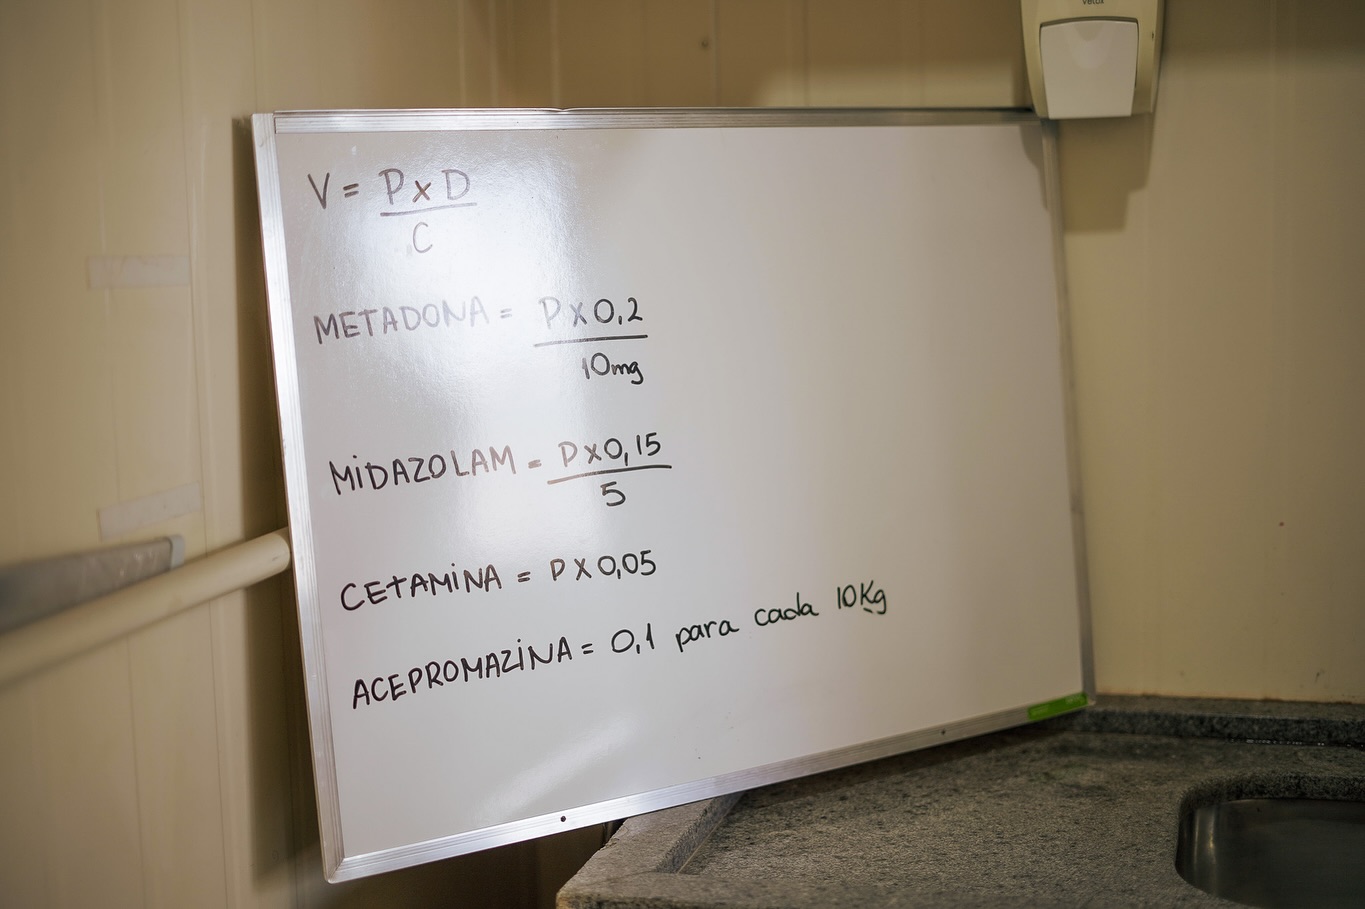 V = P x D
C
METADONA = P x 0,2
10mg
MIDAZOLAM = P x 0,15
5
CETAMINA = P x 0,05
ACEPROMAZINA = 0,1 para cada 10Kg